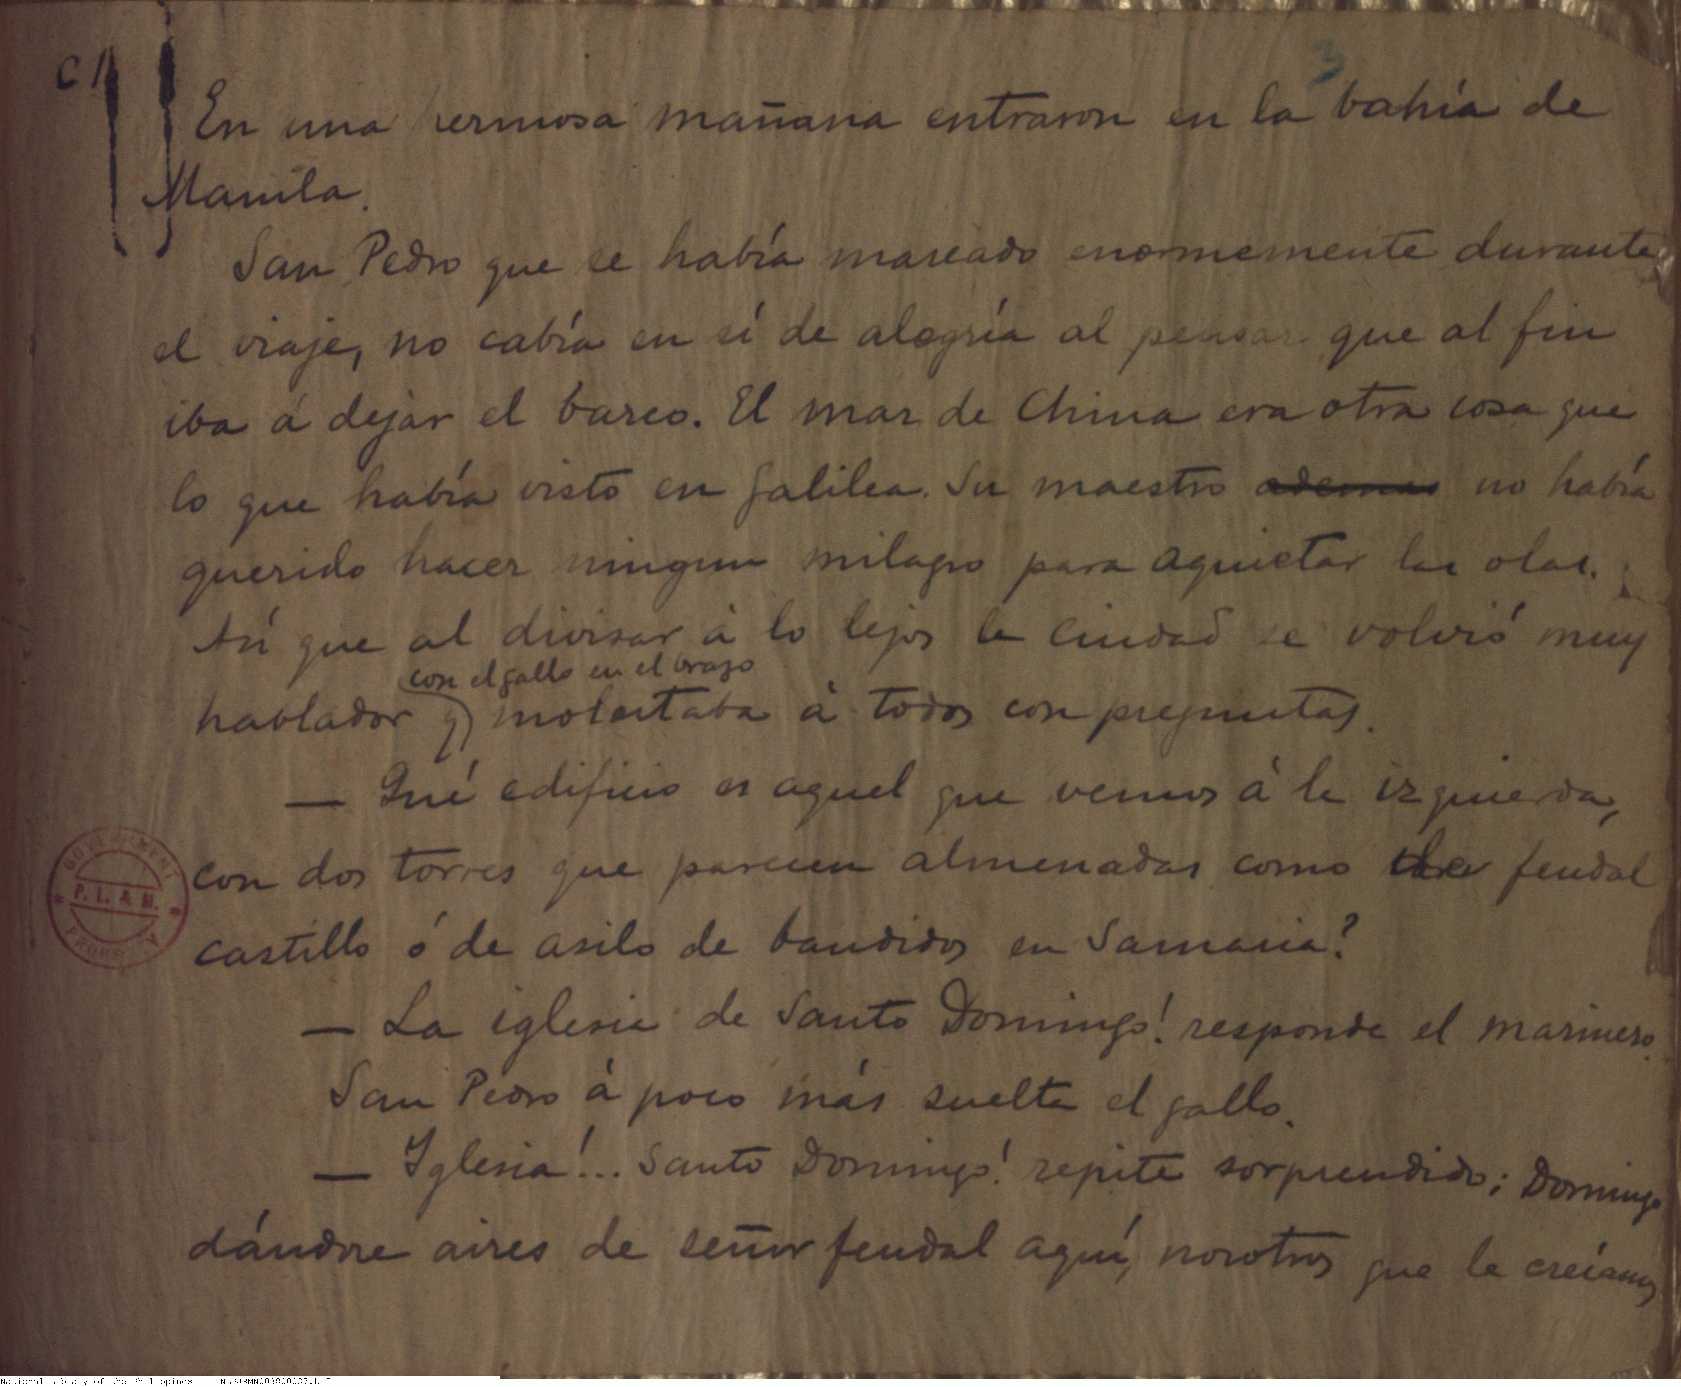 C 11
3
En una hermosa mañana entraron en la bahía de
Manila.
San Pedro que se había mareado enormemente durante
el viaje, no cabía en sí de alegría al pensar que al fin
iba á dejar el barco. El mar de China era otra cosa que
lo que había visto en Galilea. Su maestro ademas no había
querido hacer ningun milagro para aquietar las olas.
Así que al divisar á lo lejos la ciudad se volvió muy
con el gallo en el brazo
hablador y molestaba á todos con preguntas.
— Qué edificio es aquel que vemos á la izquierda,
con dos torres que parecen almenadas como feudal
castillo ó de asilo de bandidos en Samaria?
— La iglesia de Santo Domingo! responde el marinero.
San Pedro á poco más suelta el gallo.
— Iglesia!... Santo Domingo! repite sorprendido; Domingo
dándose aires de señor feudal aquí, nosotros que le creíamos
GOVERNMENT
P. L. & M.
PROPERTY
National Library of the Philippines